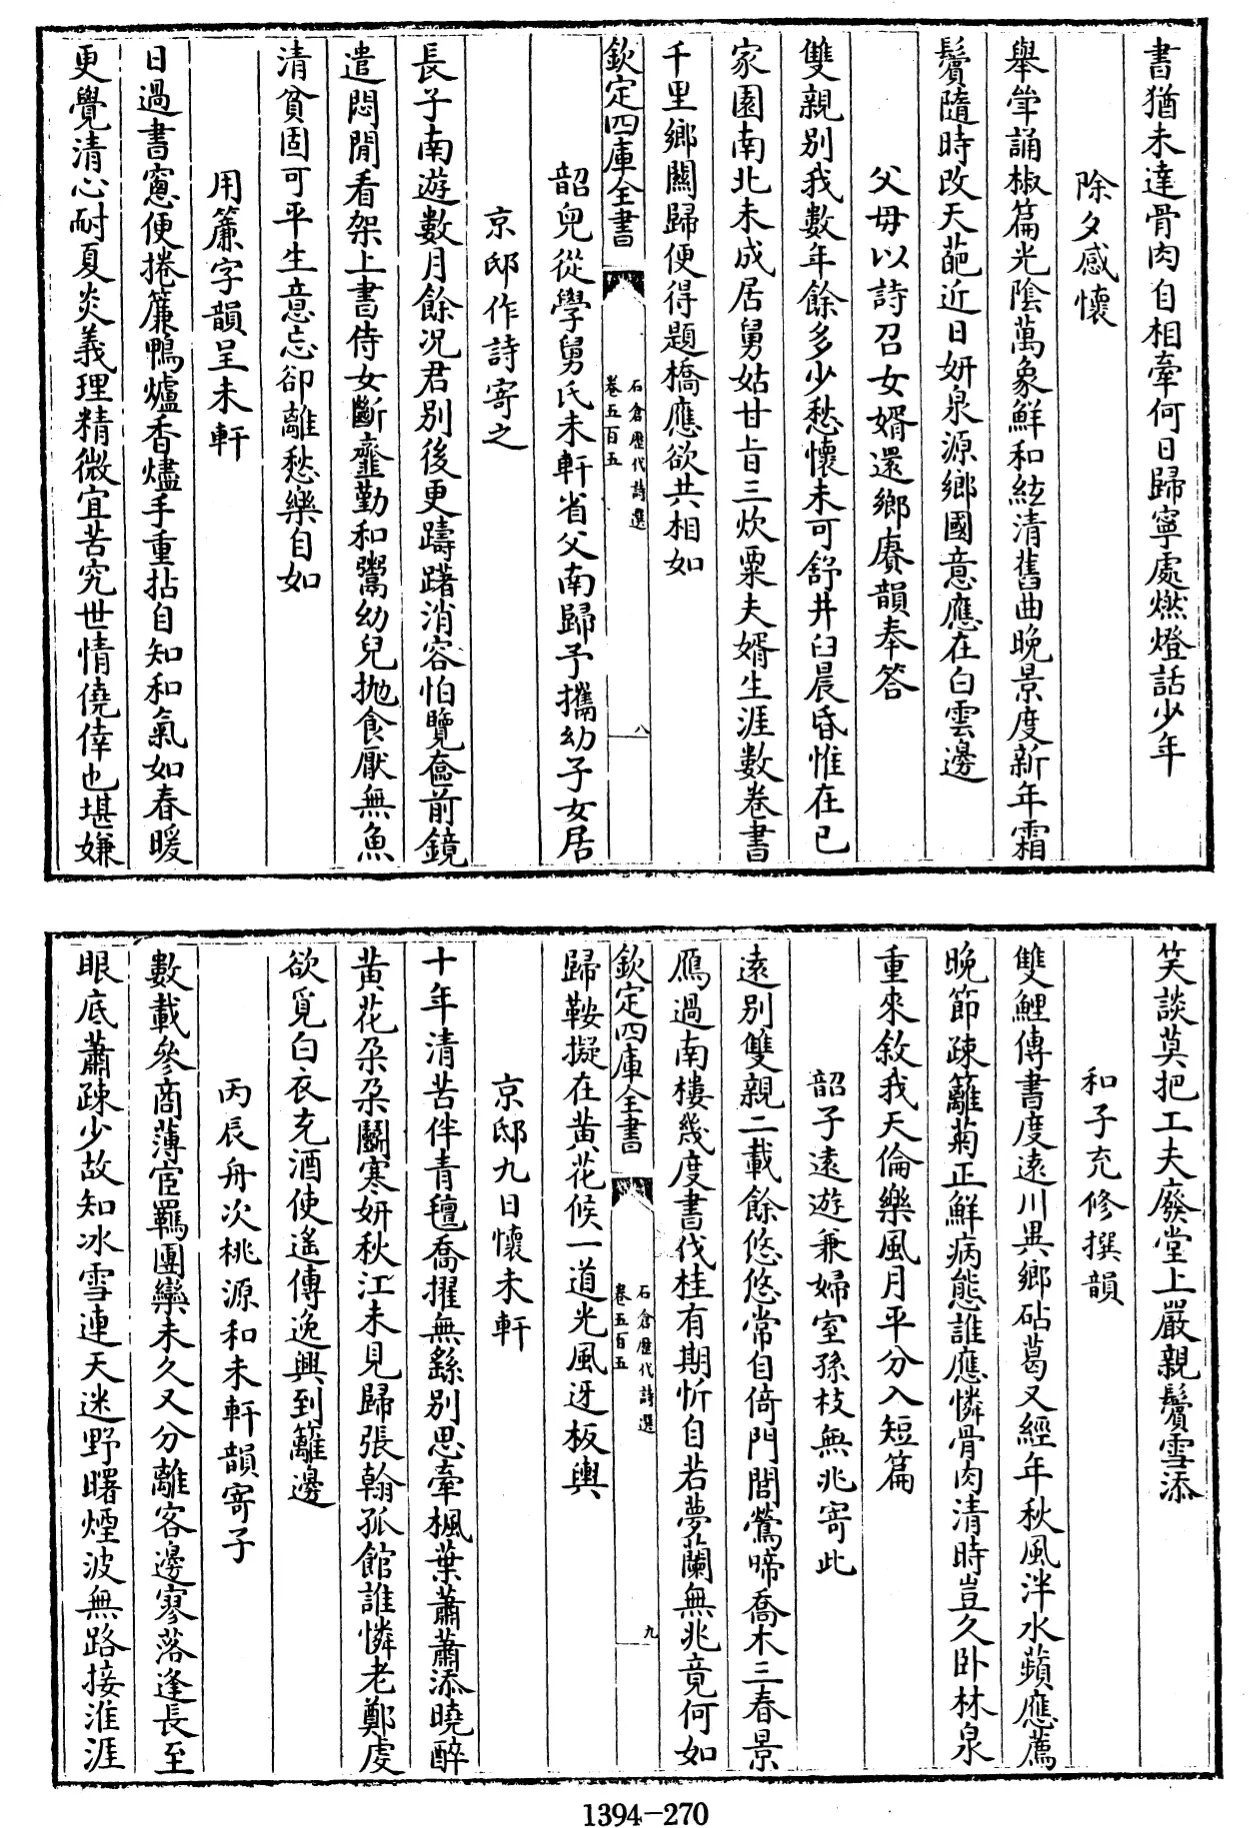 書猶未達骨肉自相牽何日歸寧處燃燈話少年
除夕感懷
舉觴誦椒篇光陰萬象鮮和絃清舊曲晚景度新年霜
鬢隨時改天葩近日妍泉源鄉國意應在白雲邊
父母以詩召女婿還鄉賡韻奉答
雙親別我數年餘多少愁懷未可舒井臼晨昏惟在已
家園南北未成居舅姑甘旨三炊粟夫婿生涯數卷書
千里鄉關歸便得題橋應欲共相如
欽定四庫全書
石倉歷代詩選
卷五百五
八
韶兒從學舅氏未軒省父南歸予攜幼子女居
京邸作詩寄之
長子南遊數月餘況君別後更躊躇消容怕覽奩前鏡
遣悶閒看架上書侍女斷虀勤和鬻幼兒拋食厭無魚
清貧固可平生意忘卻離愁樂自如
用簾字韻呈未軒
日過書窻便捲簾鴨爐香燼手重拈自知和氣如春暖
更覺清心耐夏炎義理精微宜苦究世情僥倖也堪嫌
笑談莫把工夫廢堂上嚴親鬢雪添
和子充修撰韻
雙鯉傳書度遠川異鄉砧葛又經年秋風泮水蘋應薦
晚節疎籬菊正鮮病態誰應憐骨肉清時豈久卧林泉
重來敘我天倫樂風月平分入短篇
韶子遠遊兼婦室孫枝無兆寄此
遠別雙親二載餘悠悠常自倚門閭鶯啼喬木三春景
鴈過南樓幾度書伐桂有期忻自若夢蘭無兆竟何如
歸鞍擬在黃花候一道光風迓板輿
欽定四庫全書
石倉歷代詩選
卷五百五
九
京邸九日懷未軒
十年清苦伴青氊喬擢無繇別思牽楓葉蕭蕭添曉醉
黃花朶朶鬭寒妍秋江未見歸張翰孤館誰憐老鄭虔
欲覓白衣充酒使遙傳逸興到籬邊
丙辰舟次桃源和未軒韻寄子
數載參商薄宦羈團欒未久又分離客邊寥落逢長至
眼底蕭疎少故知冰雪連天迷野曙煙波無路接淮涯
1394-270